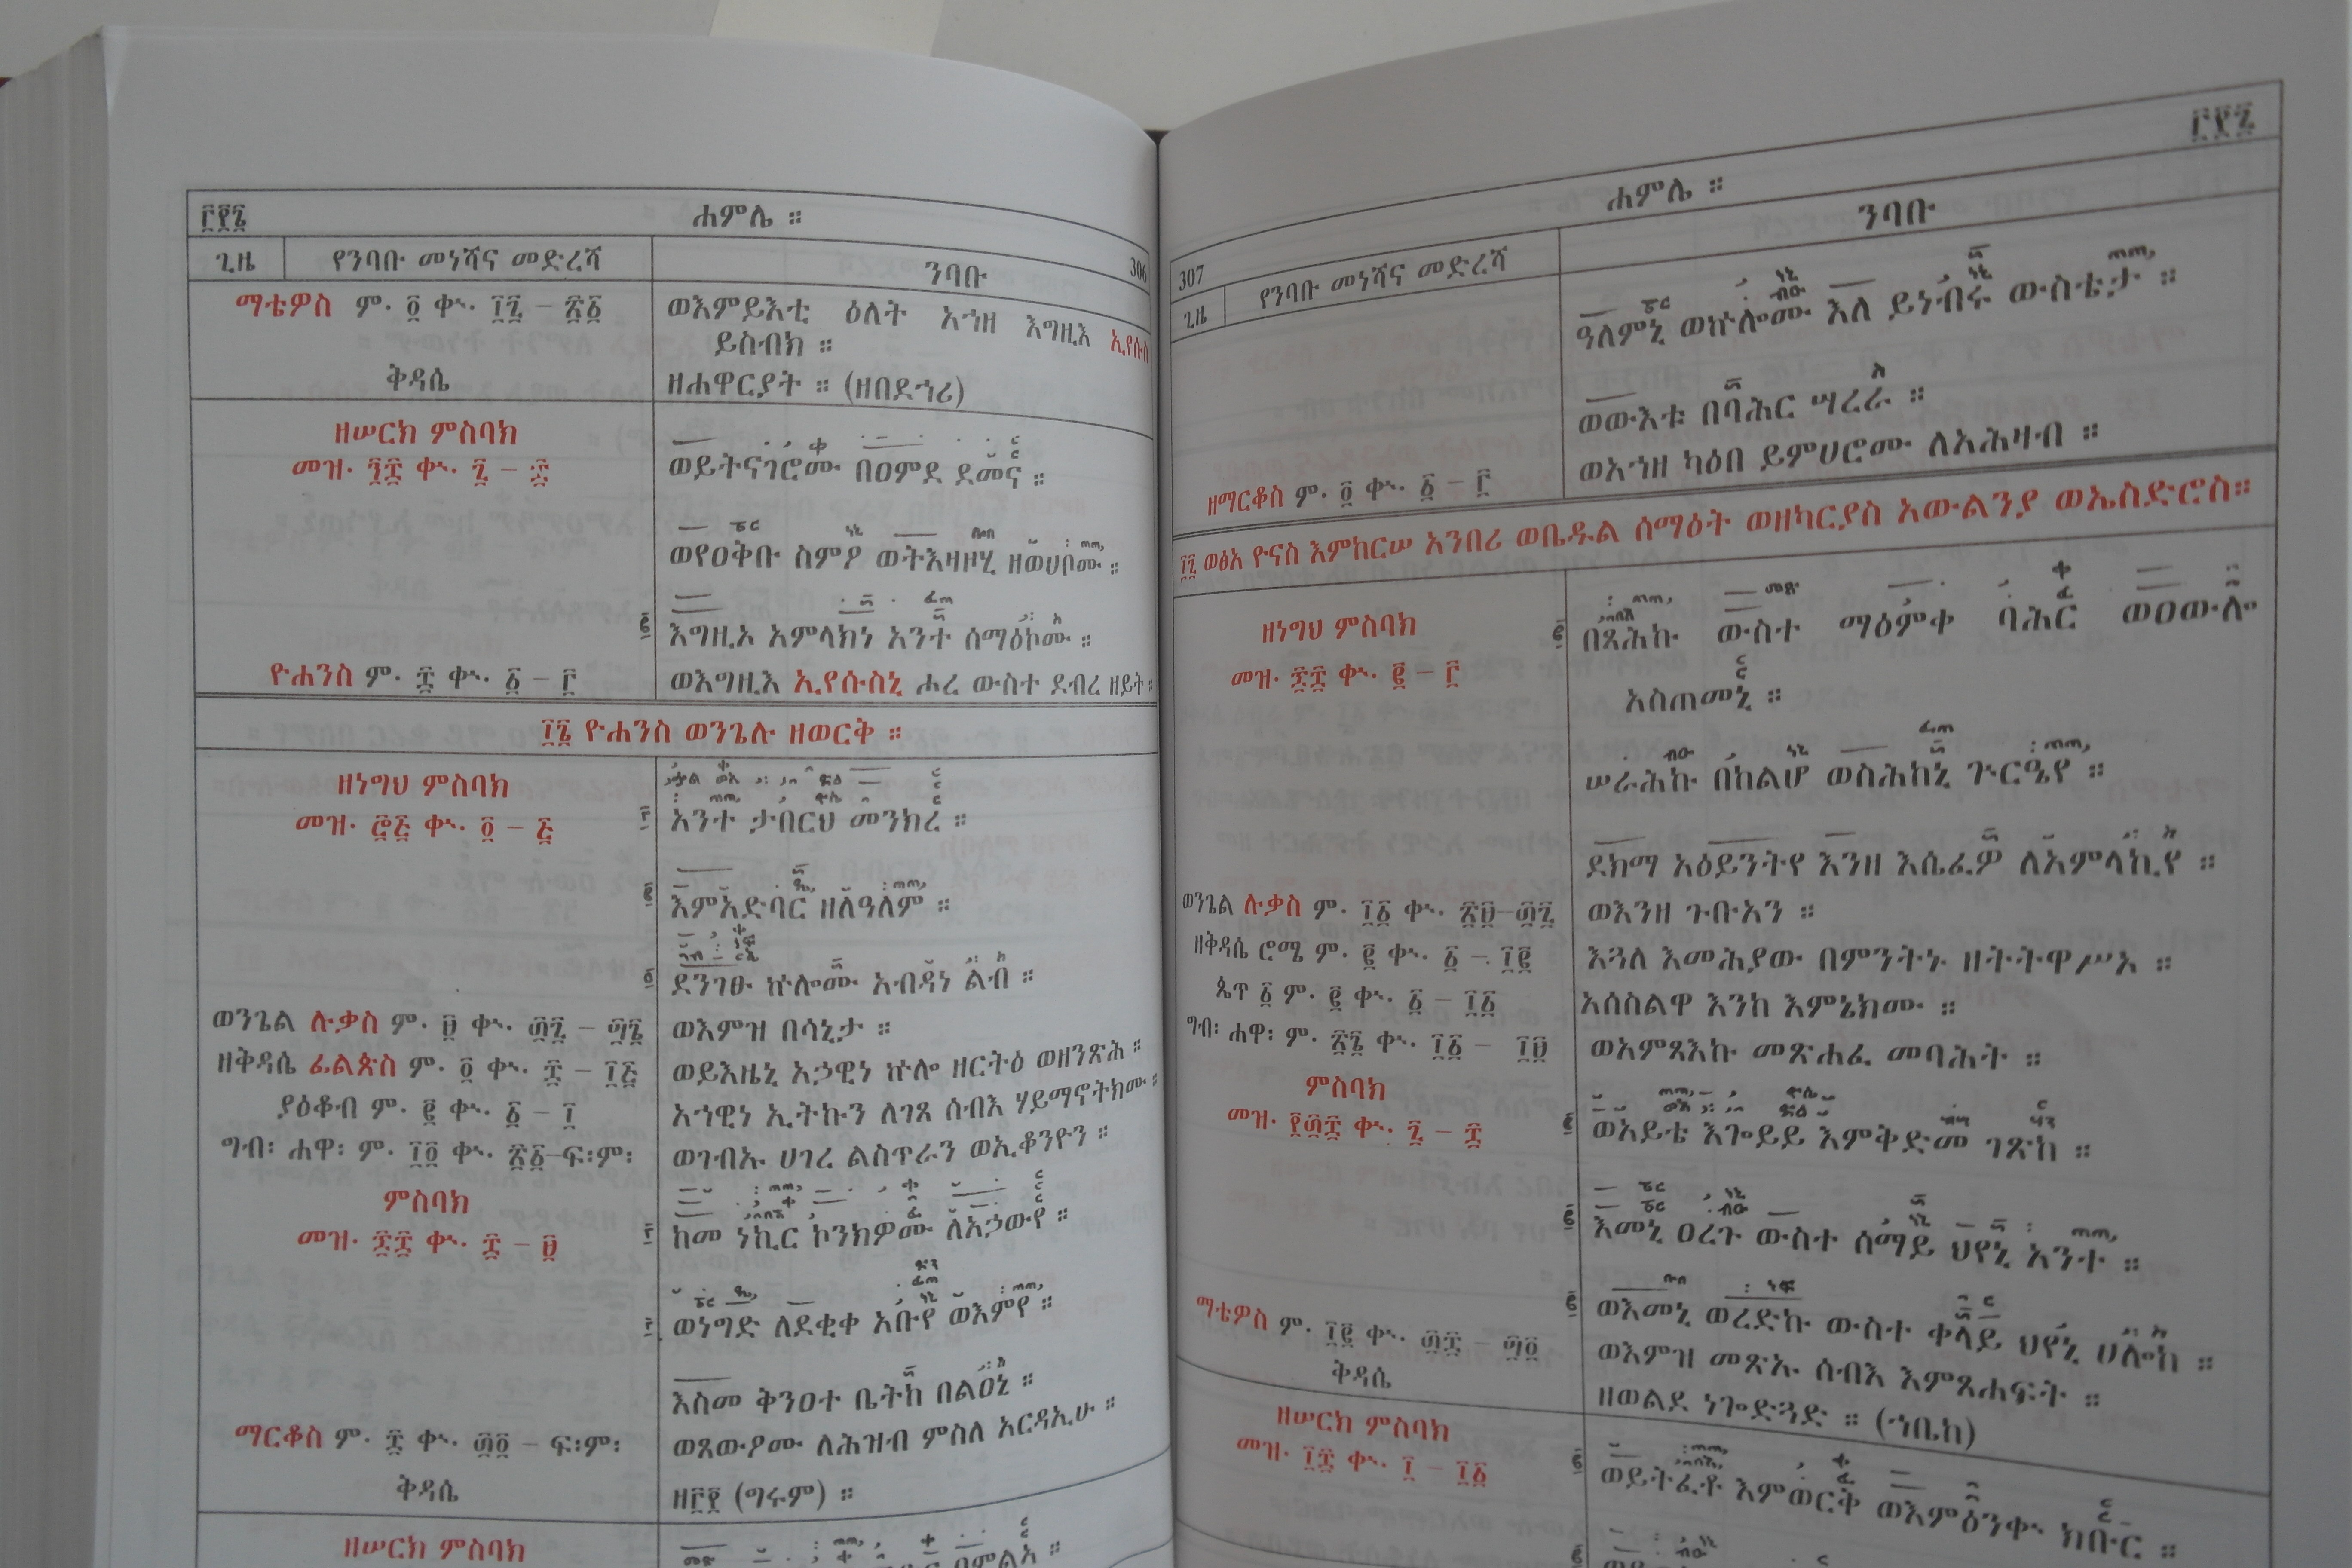 ፫፻፮
ሐምሌ ።
306
ጊዜ የንባቡ መነሻና መድረሻ ንባቡ
ማቴዎስ ም. ፬ ቀ. ፲፯ – ፳፩
ወእምይእቲ ዕለት አኀዘ እግዚእ ኢየሱስ
ይስብክ ።
ቅዳሴ
ዘሐዋርያት ። (ዘበደኀሪ)
ዘሠርክ ምስባክ
መዝ. ፺፰ ቀ. ፯ – ፰
ወይትናገሮሙ በዐምደ ደመና ።
ወየዐቅቡ ስምዖ ወትእዛዞሂ ዘወሀቦሙ ።
እግዚኦ አምላክነ አንተ ሰማዕኮሙ ።
ዮሐንስ ም. ፰ ቀ. ፩ – ፫
ወእግዚእ ኢየሱስኒ ሖረ ውስተ ደብረ ዘይት ።
፲፮ ዮሐንስ ወንጌሉ ዘወርቅ ።
ዘነግህ ምስባክ
መዝ. ፸፭ ቀ. ፬ – ፭
አንተ ታበርህ መንክረ ።
እምአድባር ዘለዓለም ።
ደንገፁ ኵሎሙ አብዳነ ልብ ።
ወንጌል ሉቃስ ም. ፱ ቀ. ፴፯ – ፵፮
ወእምዝ በሳኒታ ።
ዘቅዳሴ ፊልጵስ ም. ፬ ቀ. ፰ – ፲፭
ወይእዜኒ አኃዊነ ኵሎ ዘርትዕ ወዘንጽሕ ።
ያዕቆብ ም. ፪ ቀ. ፩ – ፲
አኀዊነ ኢትኩን ለገጸ ሰብእ ሃይማኖትክሙ ።
ግብ፡ ሐዋ፡ ም. ፲፬ ቀ. ፳፩–ፍ፡ም፡
ወገብኡ ሀገረ ልስጥራን ወኢቆንዮን ።
ምስባክ
መዝ. ፷፰ ቀ. ፰ – ፱
ከመ ነኪር ኮንክዎሙ ለአኃውየ ።
ወነግድ ለደቂቀ አቡየ ወእምየ ።
እስመ ቅንዐተ ቤትከ በልዐኒ ።
ማርቆስ ም. ፰ ቀ. ፴፬ – ፍ፡ም፡
ወጸውዖሙ ለሕዝብ ምስለ አርዳኢሁ ።
ቅዳሴ
ዘ፫፻ (ግሩም) ።
ዘሠርክ ምስባክ
፫፻፯
ሐምሌ ።
307
ጊዜ የንባቡ መነሻና መድረሻ ንባቡ
ዓለምኒ ወኵሎሙ እለ ይነብሩ ውስቴታ ።
ወውእቱ በባሕር ሣረራ ።
ዘማርቆስ ም. ፬ ቀ. ፩ – ፫
ወአኀዘ ካዕበ ይምሀሮሙ ለአሕዛብ ።
፲፯ ወፅአ ዮናስ እምከርሠ አንበሪ ወቤዱል ሰማዕት ወዘካርያስ አውልንያ ወኤስድሮስ።
ዘነግህ ምስባክ
መዝ. ፷፰ ቀ. ፪ – ፫
በጻሕኩ ውስተ ማዕምቀ ባሕር ወዐውሎ
አስጠመኒ ።
ሠራሕኩ በከልሆ ወስሕከኒ ጕርዔየ ።
ደክማ አዕይንትየ እንዘ እሴፈዎ ለአምላኪየ ።
ወንጌል ሉቃስ ም. ፲፩ ቀ. ፳፱–፴፯
ወእንዘ ጉቡአን ።
ዘቅዳሴ ሮሜ ም. ፪ ቀ. ፩ – ፲፪
እጓለ እመሕያው በምንትኑ ዘትትዋሥእ ።
ጴጥ ፩ ም. ፪ ቀ. ፩ – ፲፩
አሰስልዋ እንከ እምኔክሙ ።
ግብ፡ ሐዋ፡ ም. ፳፮ ቀ. ፲፩ – ፲፱
ወአምጻእኩ መጽሐፈ መባሕት ።
ምስባክ
መዝ. ፻፴፰ ቀ. ፯ – ፰
ወአይቴ እጐይይ እምቅድመ ገጽከ ።
እመኒ ዐረጉ ውስተ ሰማይ ህየኒ አንተ ።
ወእመኒ ወረድኩ ውስተ ቀላይ ህየኒ ሀሎከ ።
ማቴዎስ ም. ፲፪ ቀ. ፴፰ – ፵፬
ወእምዝ መጽኡ ሰብእ እምጸሐፍት ።
ቅዳሴ
ዘወልደ ነጐድጓድ ። (ኀቤከ)
ዘሠርክ ምስባክ
መዝ. ፲፰ ቀ. ፲ – ፲፩
ወይትፈቶ እምወርቅ ወእምዕንቀ ክቡር ።